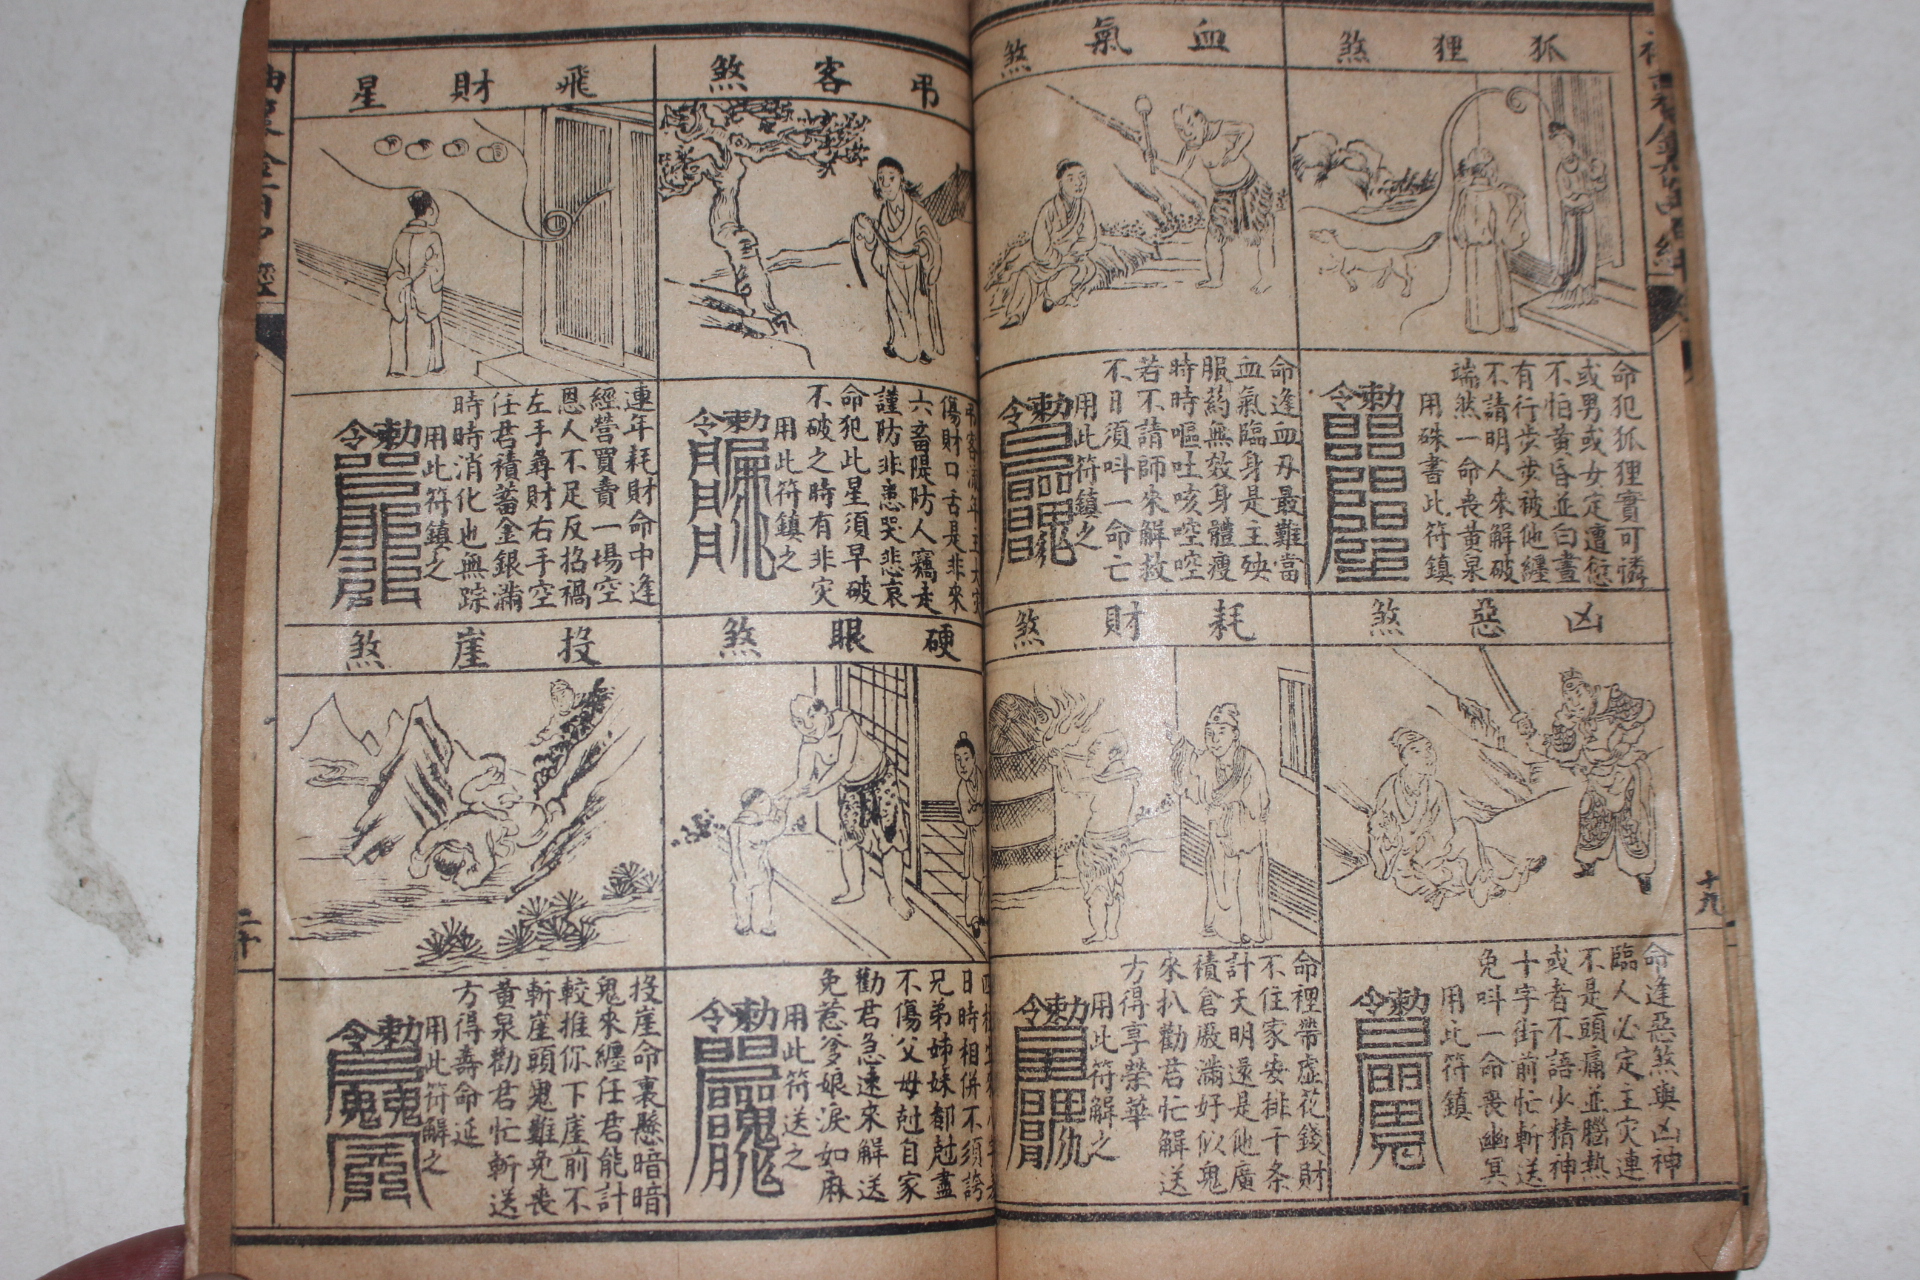 狐狸煞
命犯狐狸實可憐
或男或女定遭愆
不怕黃昏並白晝
有行步步被他纏
不請明人來解破
端然一命喪黃泉
用硃書此符鎮
勅令
血氣煞
命逢血刃最難當
血氣臨身是主殃
服葯無效身體瘦
時時嘔吐咳啌啌
若不請師來解救
不日須呌一命亡
用此符鎮之
勅令
凶惡煞
命逢惡煞與凶神
臨人必定主灾連
不是頭痛並腦熱
或者不語少精神
十字街前忙斬送
免呌一命喪幽冥
用此符鎮
勅令
耗財煞
命裡帶虛花錢財
不住家安排千条
計天明還是他廣
積倉廒滿好似鬼
來扒勸君忙解送
方得享榮華
用此符解之
勅令
十九
弔客煞
弔客流年主大灾
傷財口舌是非來
六畜隄防人竊走
謹防非患哭悲哀
命犯此星須早破
不破之時有非灾
用此符鎮之
勅令
飛財星
連年耗財命中逢
經營買賣一場空
恩人不足反招禍
左手尋財右手空
任君積蓄金銀滿
時時消化也無踪
用此符鎮之
勅令
硬眼煞
日時相併不須誇
兄弟姊妹都尅盡
不傷父母尅自家
勸君急速來解送
免惹爹娘淚如麻
用此符送之
勅令
投崖煞
投崖命裏懸暗暗
鬼來纏任君能計
較推你下崖前不
斬崖頭鬼難免喪
黃泉勸君忙斬送
方得壽命延
用此符解之
勅令
二十